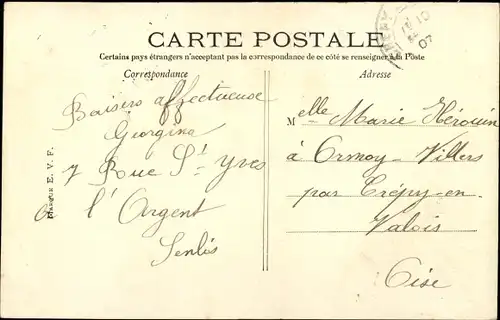 CARTE POSTALE
Certains pays étrangers n'acceptant pas la correspondance de ce côté se renseigner à la Poste
Correspondance
Adresse
Baisers affectueuse
Georgina
7 Roue St Yves
à l'Argent
Senlis
MARQUE E. V. F.
Melle Marie Hérouin
à Ormoy-Villers
par Crépy-en-
Valois
Oise
10
07